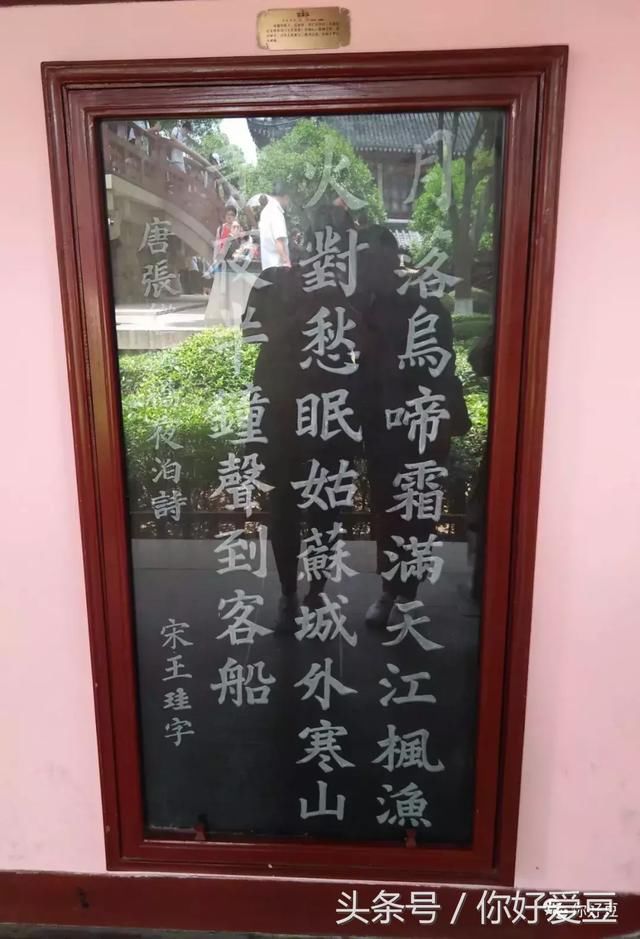 月落烏啼霜滿天江楓漁
火對愁眠姑蘇城外寒山
夜半鐘聲到客船
唐張 夜泊詩
宋王珪字
头条号／你好爱豆